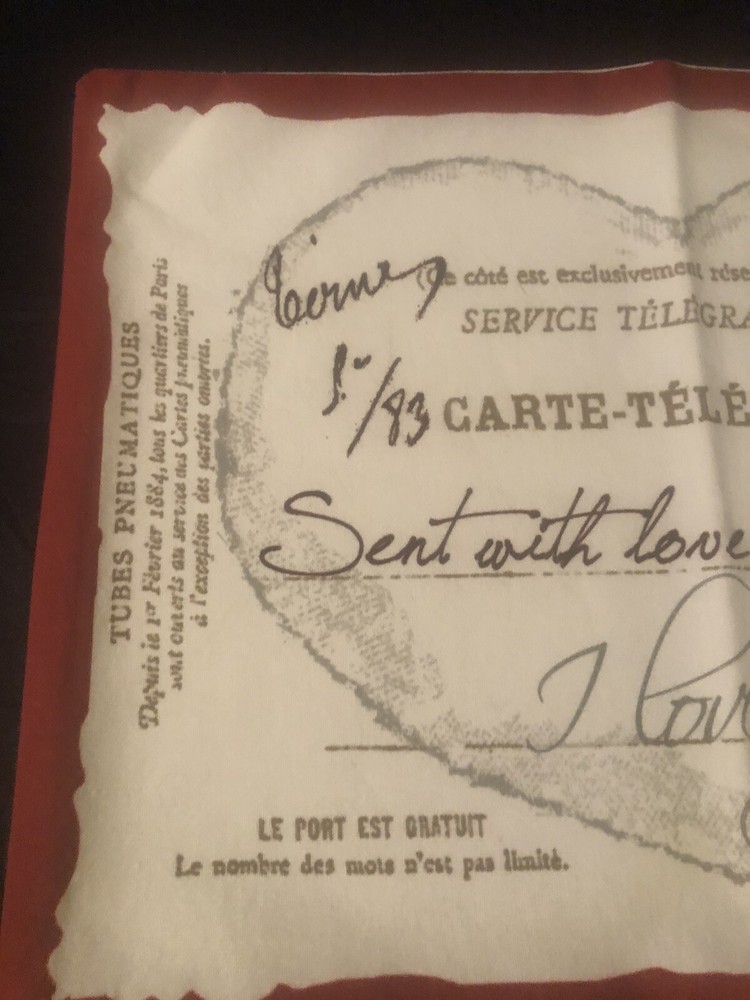 TUBES PNEUMATIQUES
Depuis le 1er Février 1884, tous les quartiers de Paris
sont ouverts au service des Cartes pneumatiques
à l'exception des parties ombrées.
(Ce côté est exclusivement rése
SERVICE TÉLÉGRA
/83
CARTE-TÉLÉ
Sent with love
I lov
LE PORT EST GRATUIT
Le nombre des mots n'est pas limité.